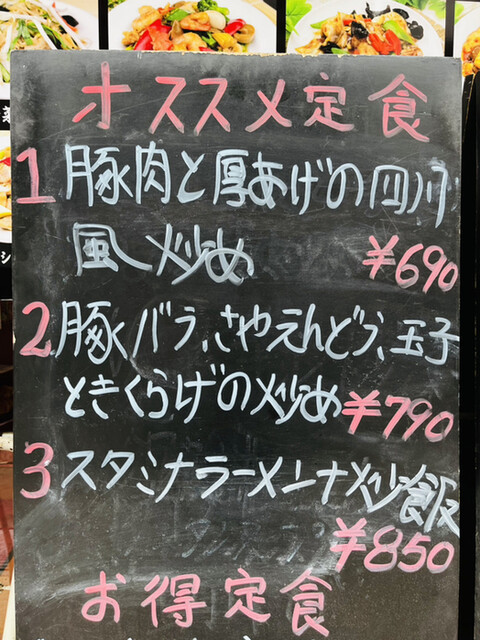 オススメ定食
1 豚肉と厚あげの四川
風炒め ¥690
2 豚バラ、さやえんどう、玉子
ときくらげの炒め ¥790
3 スタミナラーメン+炒飯
¥850
お得定食